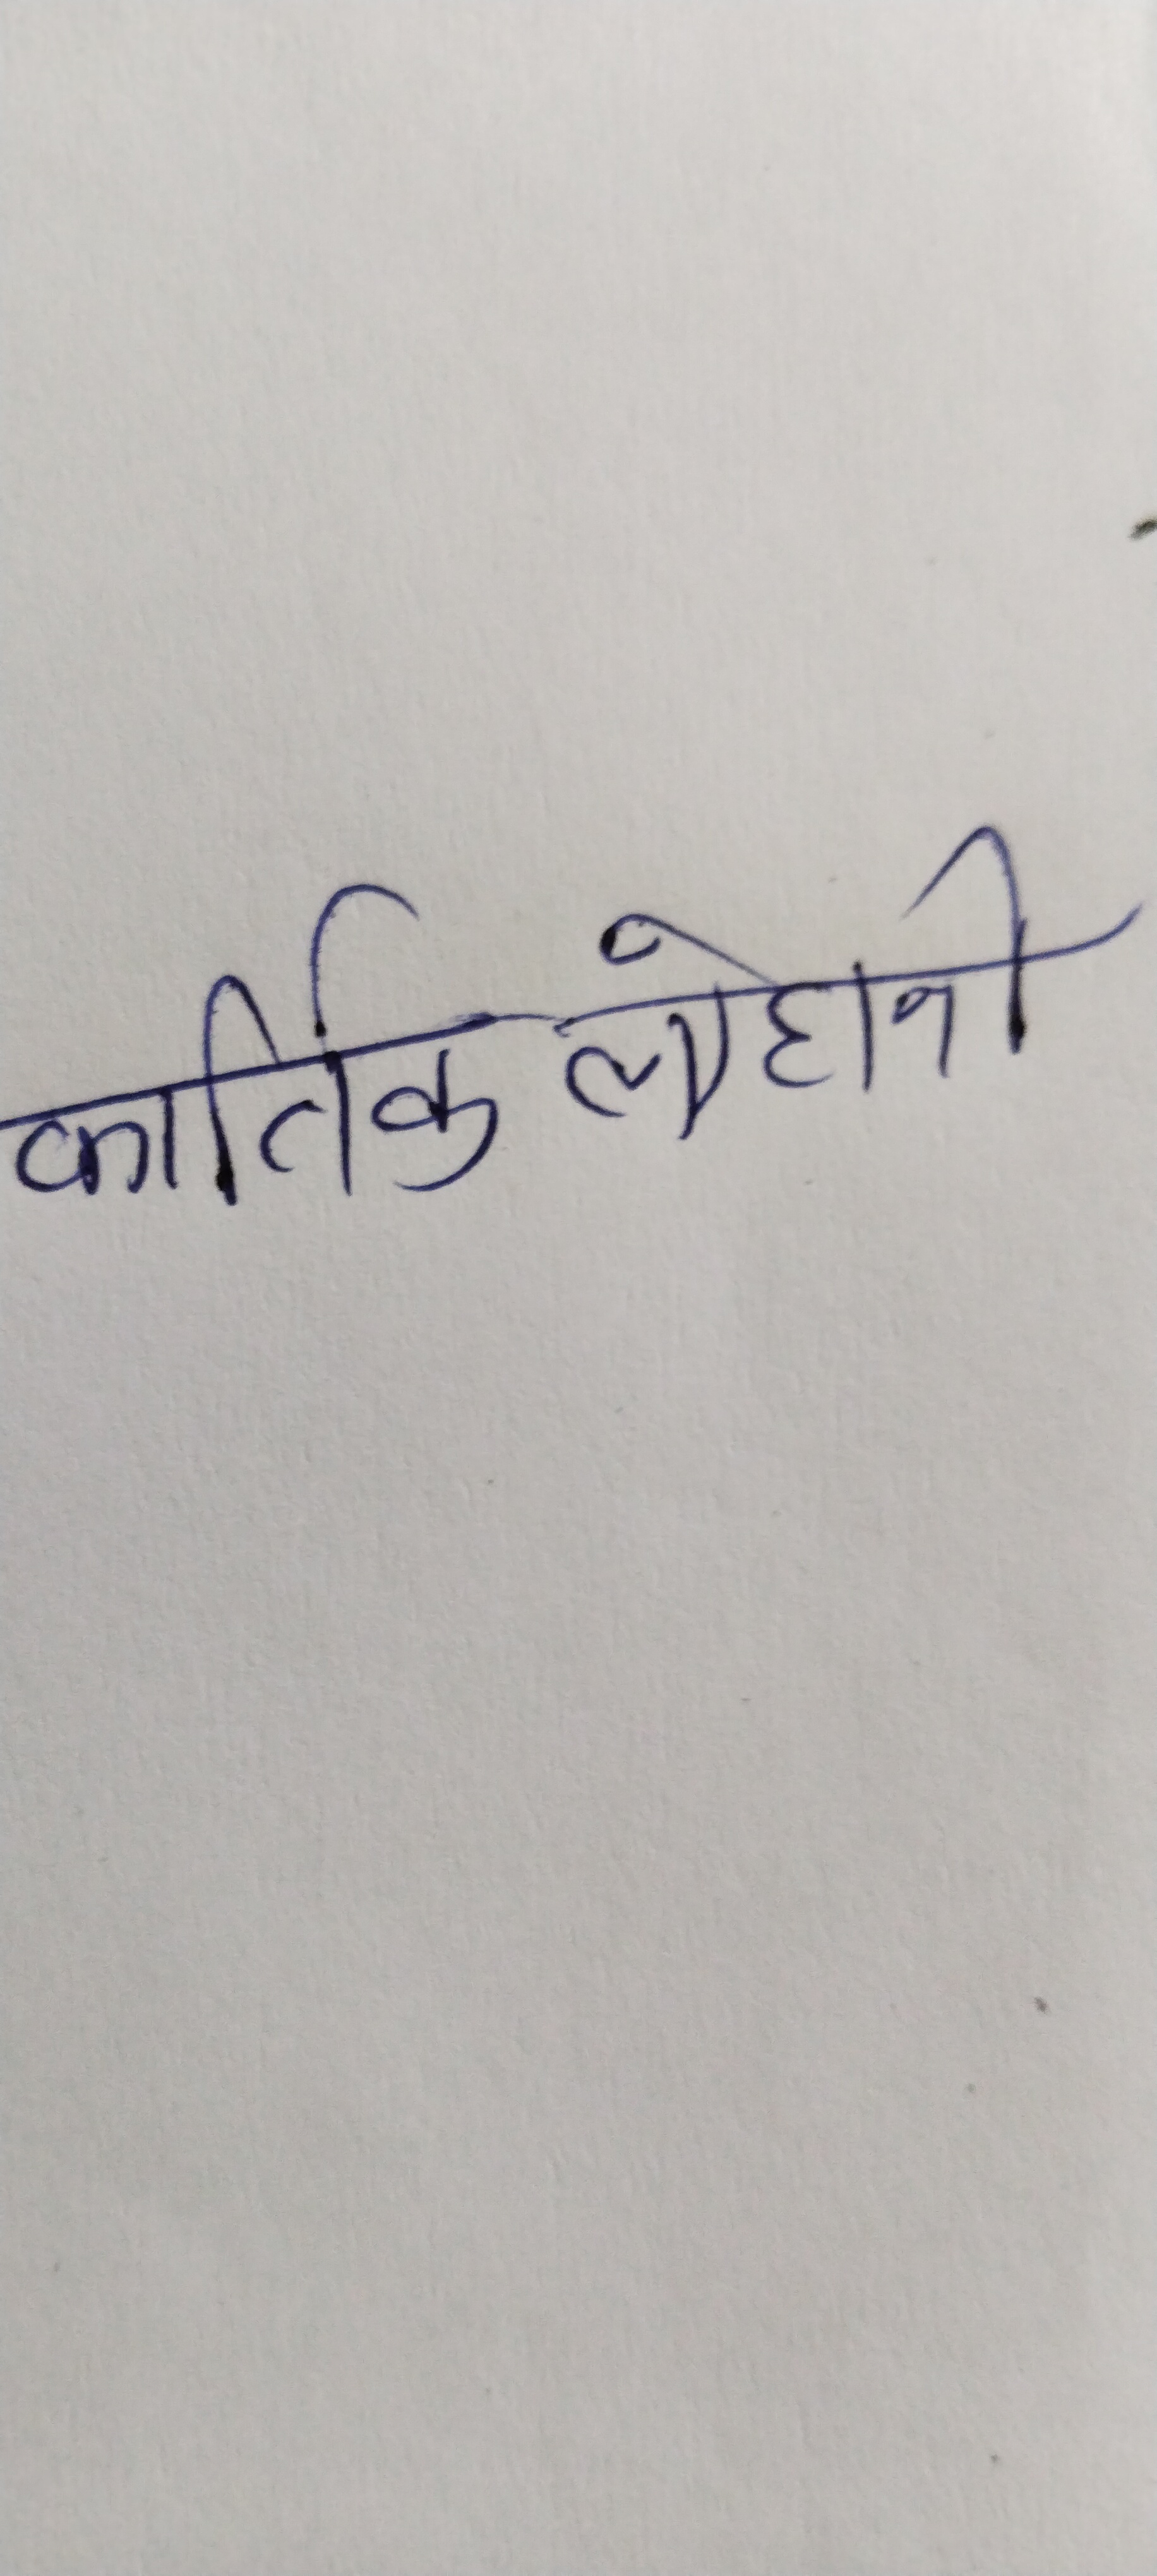 कार्तिक लोहानी